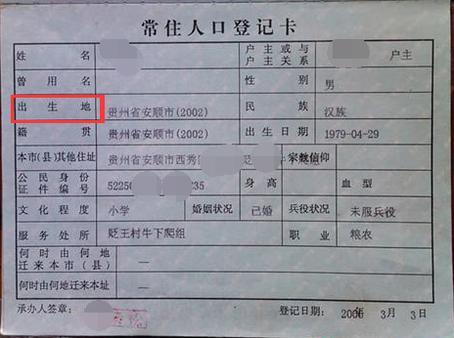 常住人口登记卡
姓名 户主或与户主关系 户主
曾用名 性别 男
出生地 贵州省安顺市(2002) 民族 汉族
籍贯 贵州省安顺市(2002) 出生日期 1979-04-29
本市(县)其他住址 贵州省安顺市西秀 宗教信仰
公民身份证件编号 52250 235 身高 血型
文化程度 小学 婚姻状况 已婚 兵役状况 未服兵役
服务处所 贬王村牛下爬组 职业 粮农
何时由何地迁来本市(县) —
何时由何地迁来本址 —
承办人签章: 登记日期: 2006年 3月 3日